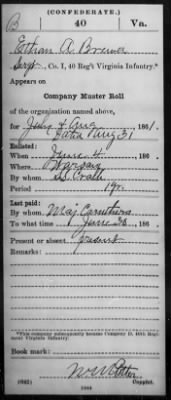 (CONFEDERATE.)
B 40 Va.
Ethan R. Brewer
Serg, Co. I, 40 Reg't Virginia Infantry.*
Appears on
Company Muster Roll
of the organization named above,
for July & Aug, 1861.
Dated Aug 31
Enlisted:
When June 4, 186 .
Where Warsaw
By whom
Period 1 yr.
Last paid:
By whom Maj.
To what time June 25, 186 .
Present or absent Present
Remarks:
*This company subsequently became Company D, 40th Regiment Virginia Infantry.
Book mark:
(642)
Copyist.